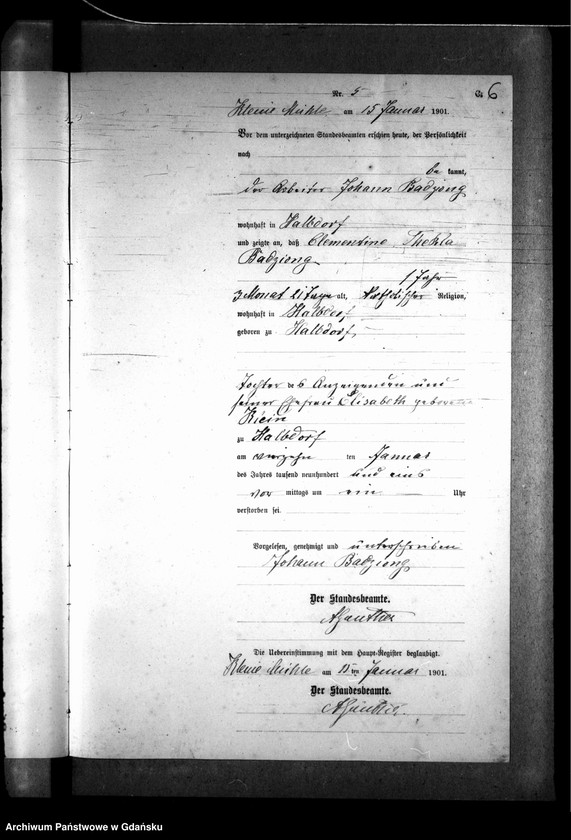 Nr. 5
C. 6
Kleine Mühle am 15 Januar 1901.
Vor dem unterzeichneten Standesbeamten erschien heute, der Persönlichkeit
nach
be kannt,
der Arbeiter Johann Badziong
wohnhaft in Halbdorf
und zeigte an, daß Clementine Thekla
Badziong
1 Jahr
3 Monat 21 Tage alt, katholischer Religion,
wohnhaft in Halbdorf
geboren zu Halbdorf
Tochter des Anzeigenden und
seiner Ehefrau Elisabeth geborene
Klein
zu Halbdorf
am vierzehn ten Januar
des Jahres tausend neunhundert und eins
vor mittags um ein Uhr
verstorben sei.
Vorgelesen, genehmigt und unterschrieben
Johann Badziong
Der Standesbeamte.
Die Uebereinstimmung mit dem Haupt-Register beglaubigt.
Kleine Mühle am 15ten Januar 1901.
Der Standesbeamte.
Archiwum Państwowe w Gdańsku